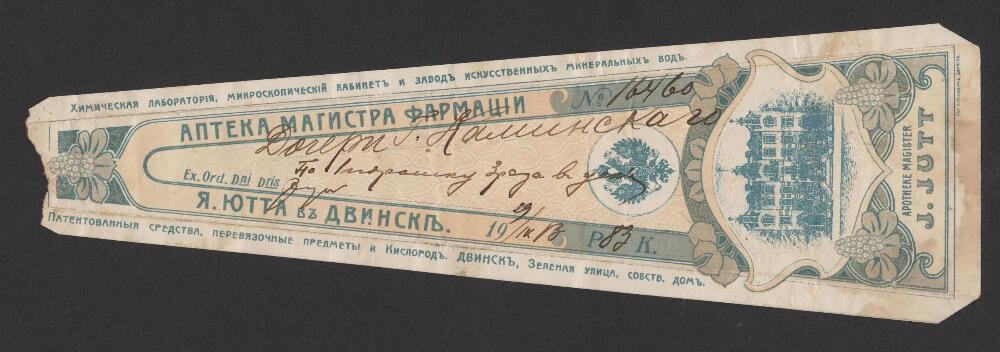 Химическая лабораторія, микроскопическій кабинетъ и заводъ искусственныхъ минеральныхъ водъ.
АПТЕКА МАГИСТРА ФАРМАЦІИ
№ 16460
Дочери г. Каминскаго
По 1 порошку 3 раза въ день
Ex. Ord. Dni Dris
Я. ЮТТА въ ДВИНСКѢ.
19 29/IX 13
Р. 83 К.
Патентованныя средства, перевязочные предметы и Кислородъ. ДВИНСКЪ, Зеленая улица, собств. домъ.
APOTHEKE MAGISTER
J. JUTT